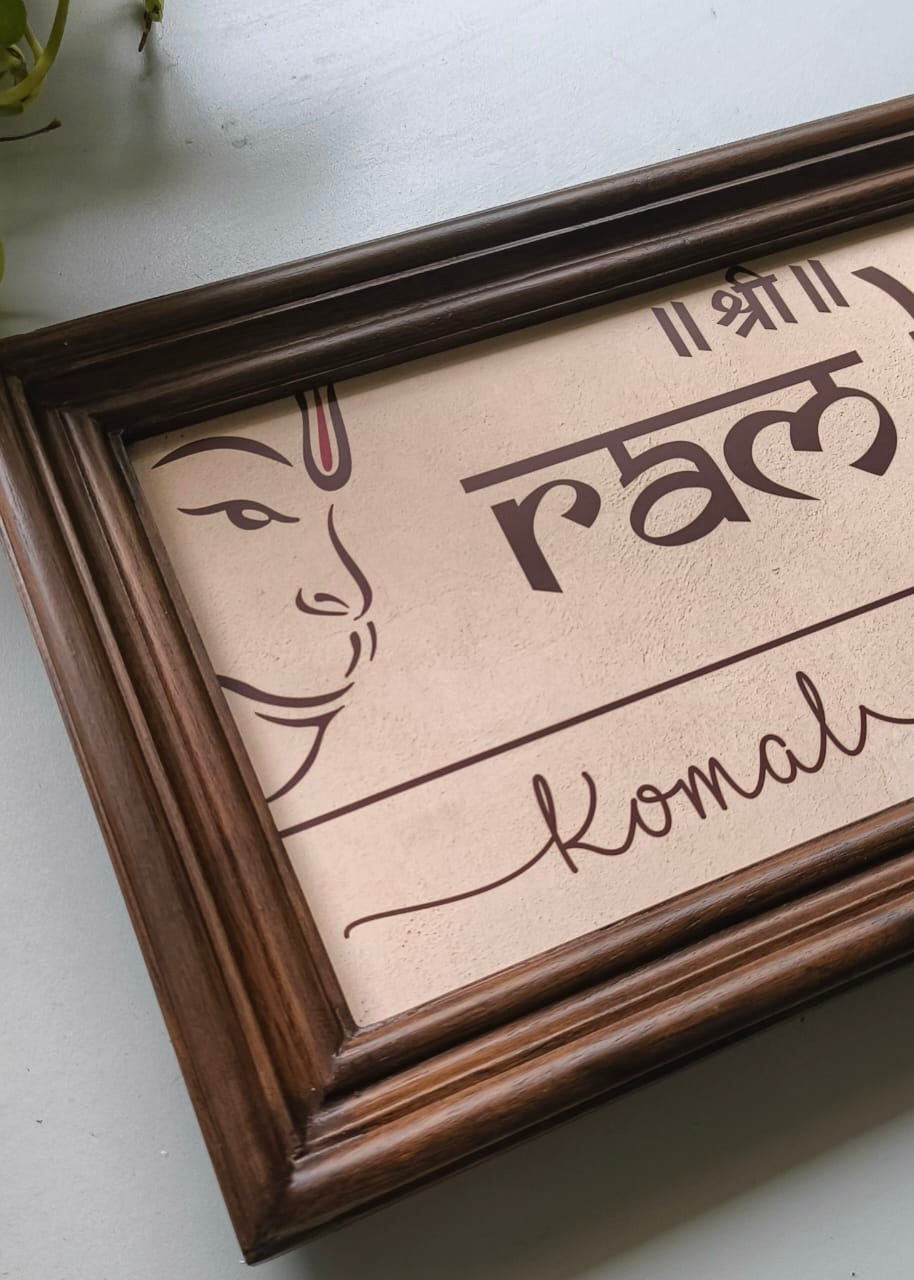 ॥ श्री ॥
ram
Komal